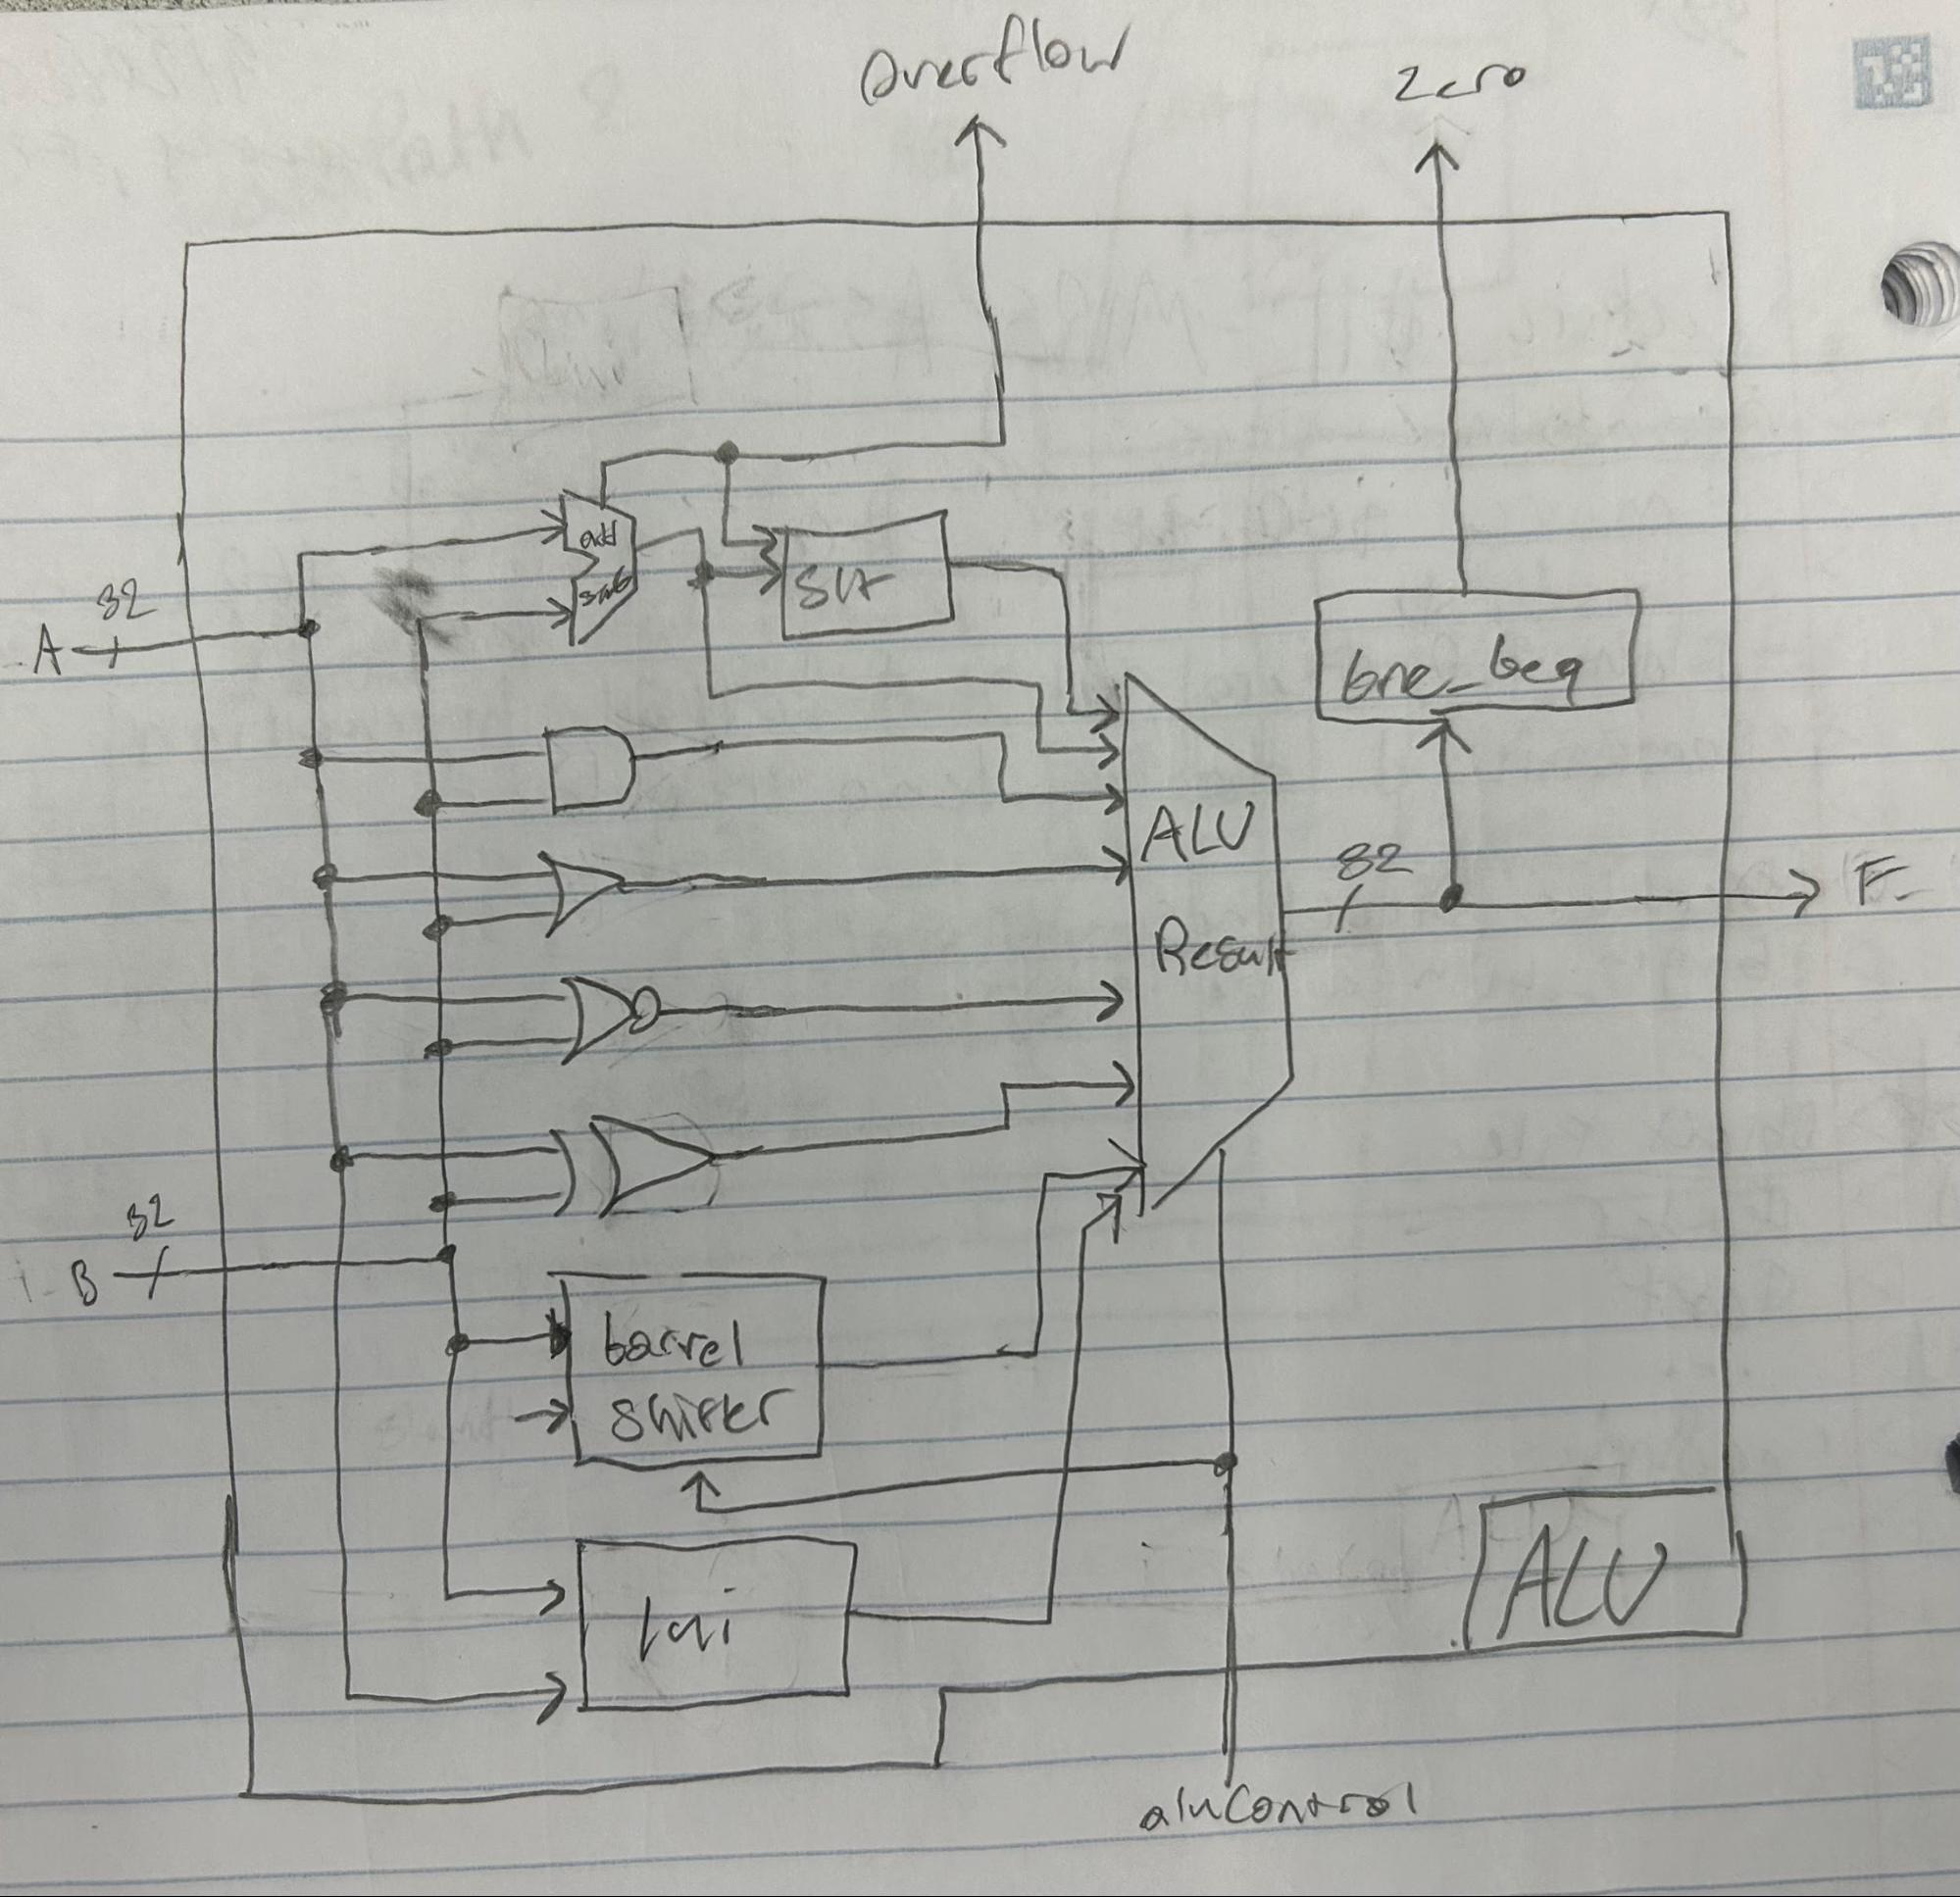 Overflow
Zero
add
sub
slt
A
32
bne_beq
ALU
Result
32
F
B
32
barrel
shifter
lui
ALU
aluControl